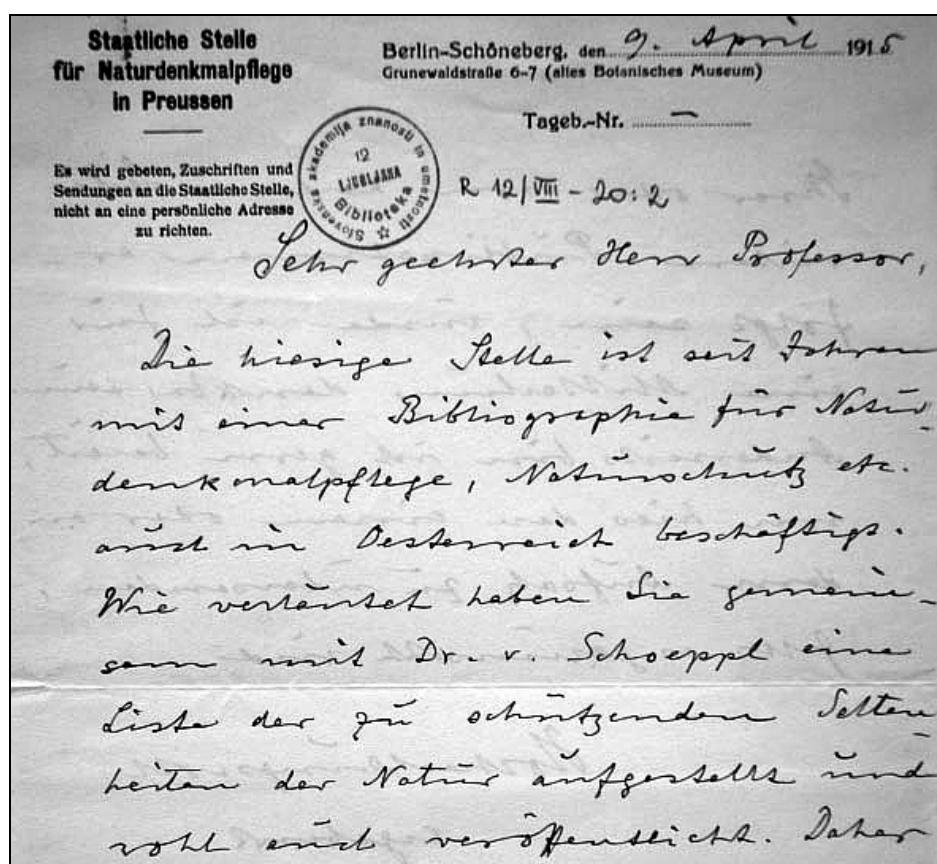 Staatliche Stelle
für Naturdenkmalpflege
in Preussen
Es wird gebeten, Zuschriften und
Sendungen an die Staatliche Stelle,
nicht an eine persönliche Adresse
zu richten.
Berlin-Schöneberg, den 9. April 1915
Grunewaldstraße 6-7 (altes Botanisches Museum)
Tageb.-Nr. —
Slovenska akademija znanosti in umetnosti
12
LJUBLJANA
Biblioteka
R 12/VIII - 20:2
Sehr geehrter Herr Professor,
Die hiesige Stelle ist seit Jahren
mit einer Bibliographie für Natur-
denkmalpflege, Naturschutz etc.
auch in Oesterreich beschäftigt.
Wie verlautet haben Sie gemein-
sam mit Dr. v. Schoeppl eine
Liste der zu schützenden Selten
heiten der Natur aufgestellt und
wohl auch veröffentlicht. Daher